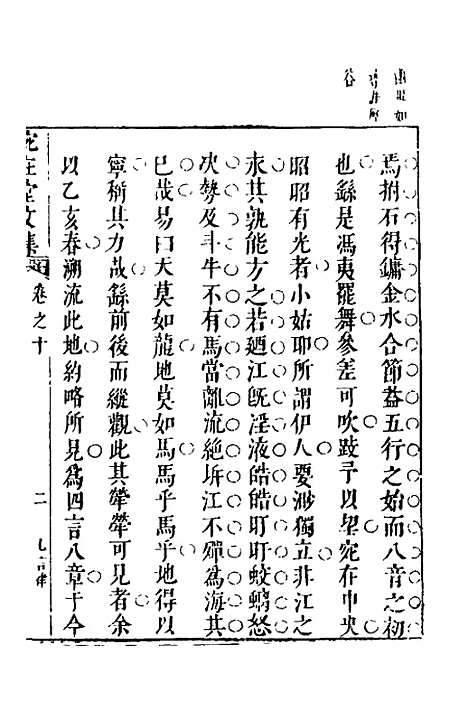 焉拊石得鏞金水合節葢五行之始而八音之初
也繇是馮夷罷舞參差可吹跂予以望宛在中央
昭昭有光者小姑耶所謂伊人要渺獨立非江之
永其孰能方之若廼江旣淫液皓皓盱盱蛟螭怒
次勢及斗牛不有馬當離流絶坼江不殫爲海其
已哉易曰天莫如龍地莫如馬馬乎馬乎地得以
寧稱其力哉繇前後而縱觀此其犖犖可見者余
以乙亥春溯流此地約略所見爲四言八章于今
在堂文集
卷之十
二